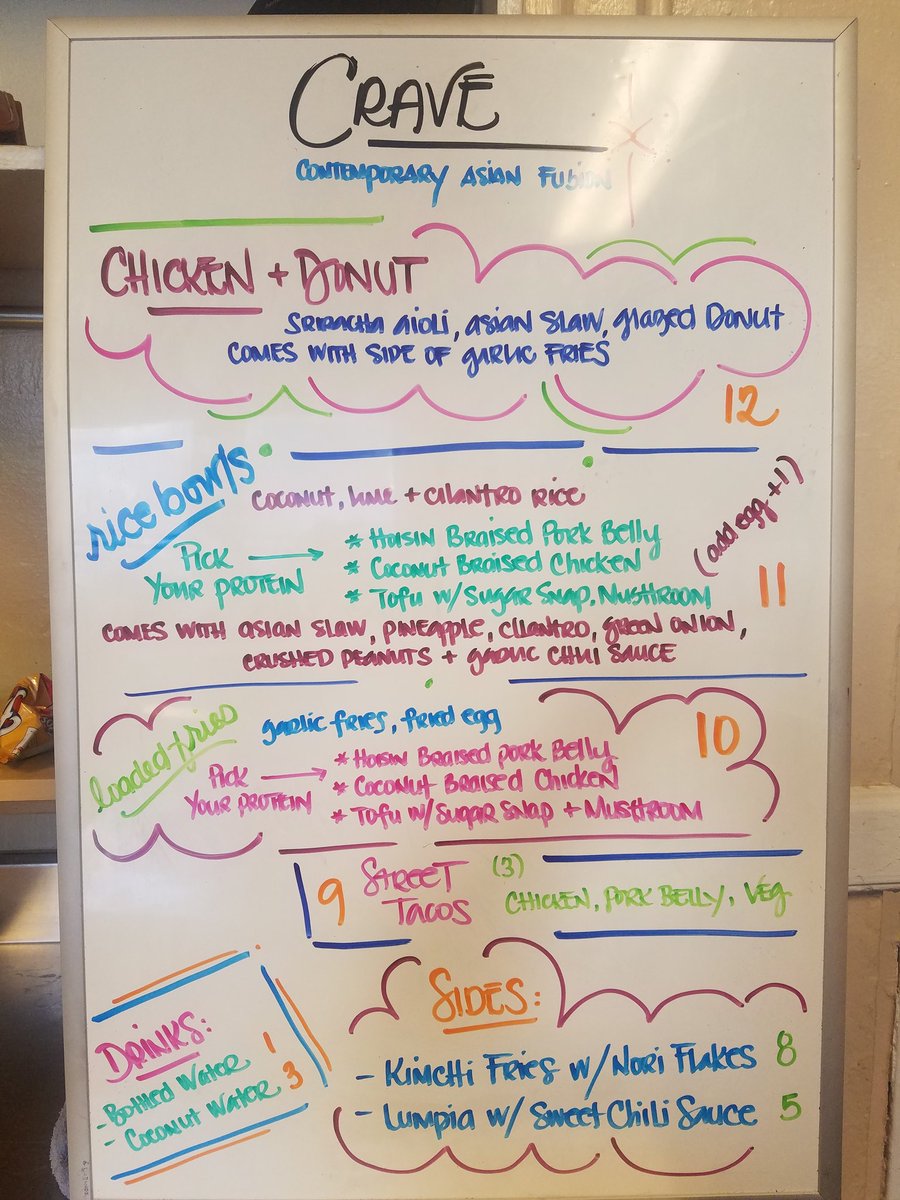 CRAVE
CONTEMPORARY ASIAN FUSION
CHICKEN + DONUT
SRIRACHA AIOLI, ASIAN SLAW, glazed DONUT
COMES WITH SIDE OF GARLIC FRIES
12
rice bowls
COCONUT, lime + CILANTRO RICE
(add egg +1)
Pick YOUR PROTEIN
* Hoisin Braised Pork Belly
* Coconut Braised Chicken
* Tofu w/ Sugar Snap, Mushroom
11
COMES WITH ASIAN SLAW, PINEAPPLE, CILANTRO, GREEN ONION,
CRUSHED PEANUTS + GARLIC CHILI SAUCE
loaded fries
garlic fries, fried egg
10
Pick YOUR PROTEIN
* Hoisin Braised Pork Belly
* Coconut Braised Chicken
* Tofu w/ Sugar Snap + Mushroom
9
STREET TACOS
(3)
CHICKEN, PORK BELLY, VEG
DRINKS:
- Bottled Water 1
- Coconut Water 3
SIDES:
- Kimchi Fries w/ Nori Flakes 8
- Lumpia w/ Sweet Chili Sauce 5